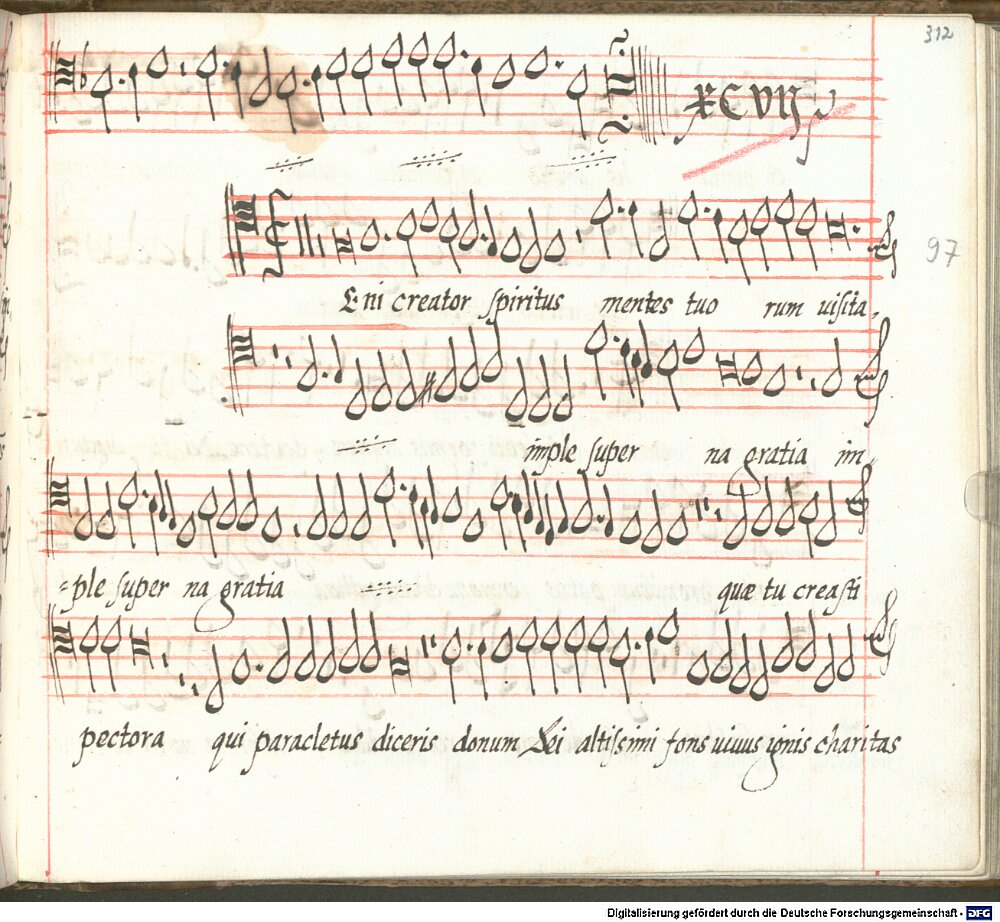 312
XCVIJ
97
Eni creator spiritus mentes tuo rum uisita.
imple super na gratia im
=ple super na gratia quæ tu creasti
pectora qui paracletus diceris donum Dei altissimi fons uiuus ignis charitas
Digitalisierung gefördert durch die Deutsche Forschungsgemeinschaft - DFG